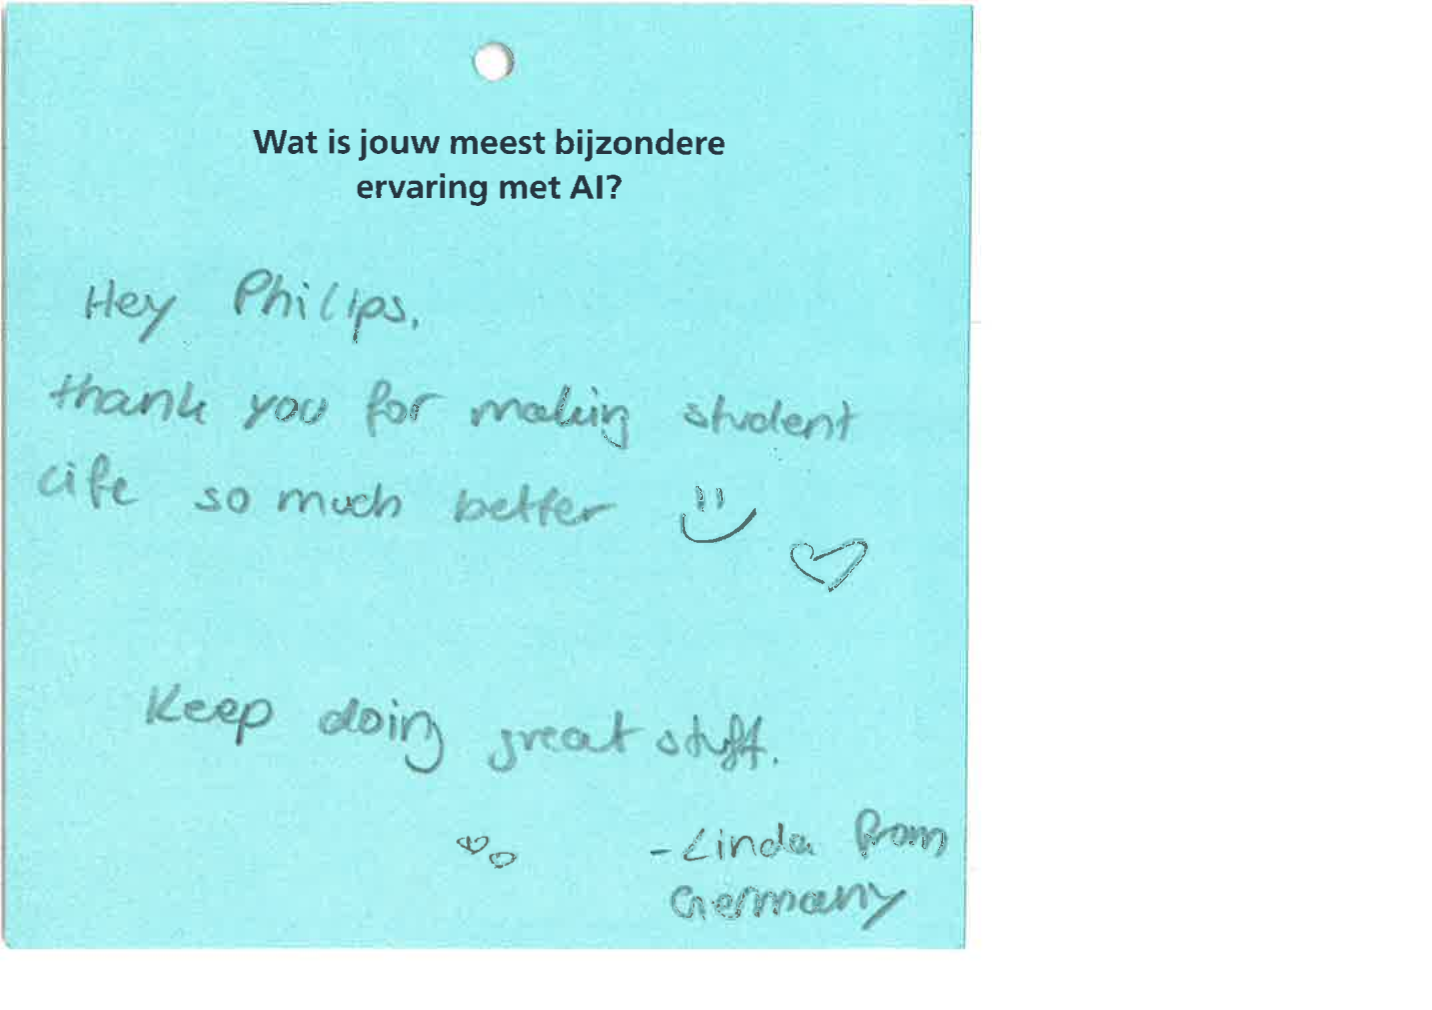 Wat is jouw meest bijzondere
ervaring met AI?
Hey Philips,
thank you for making student
life so much better
Keep doing great stuff.
-Linda from
Germany